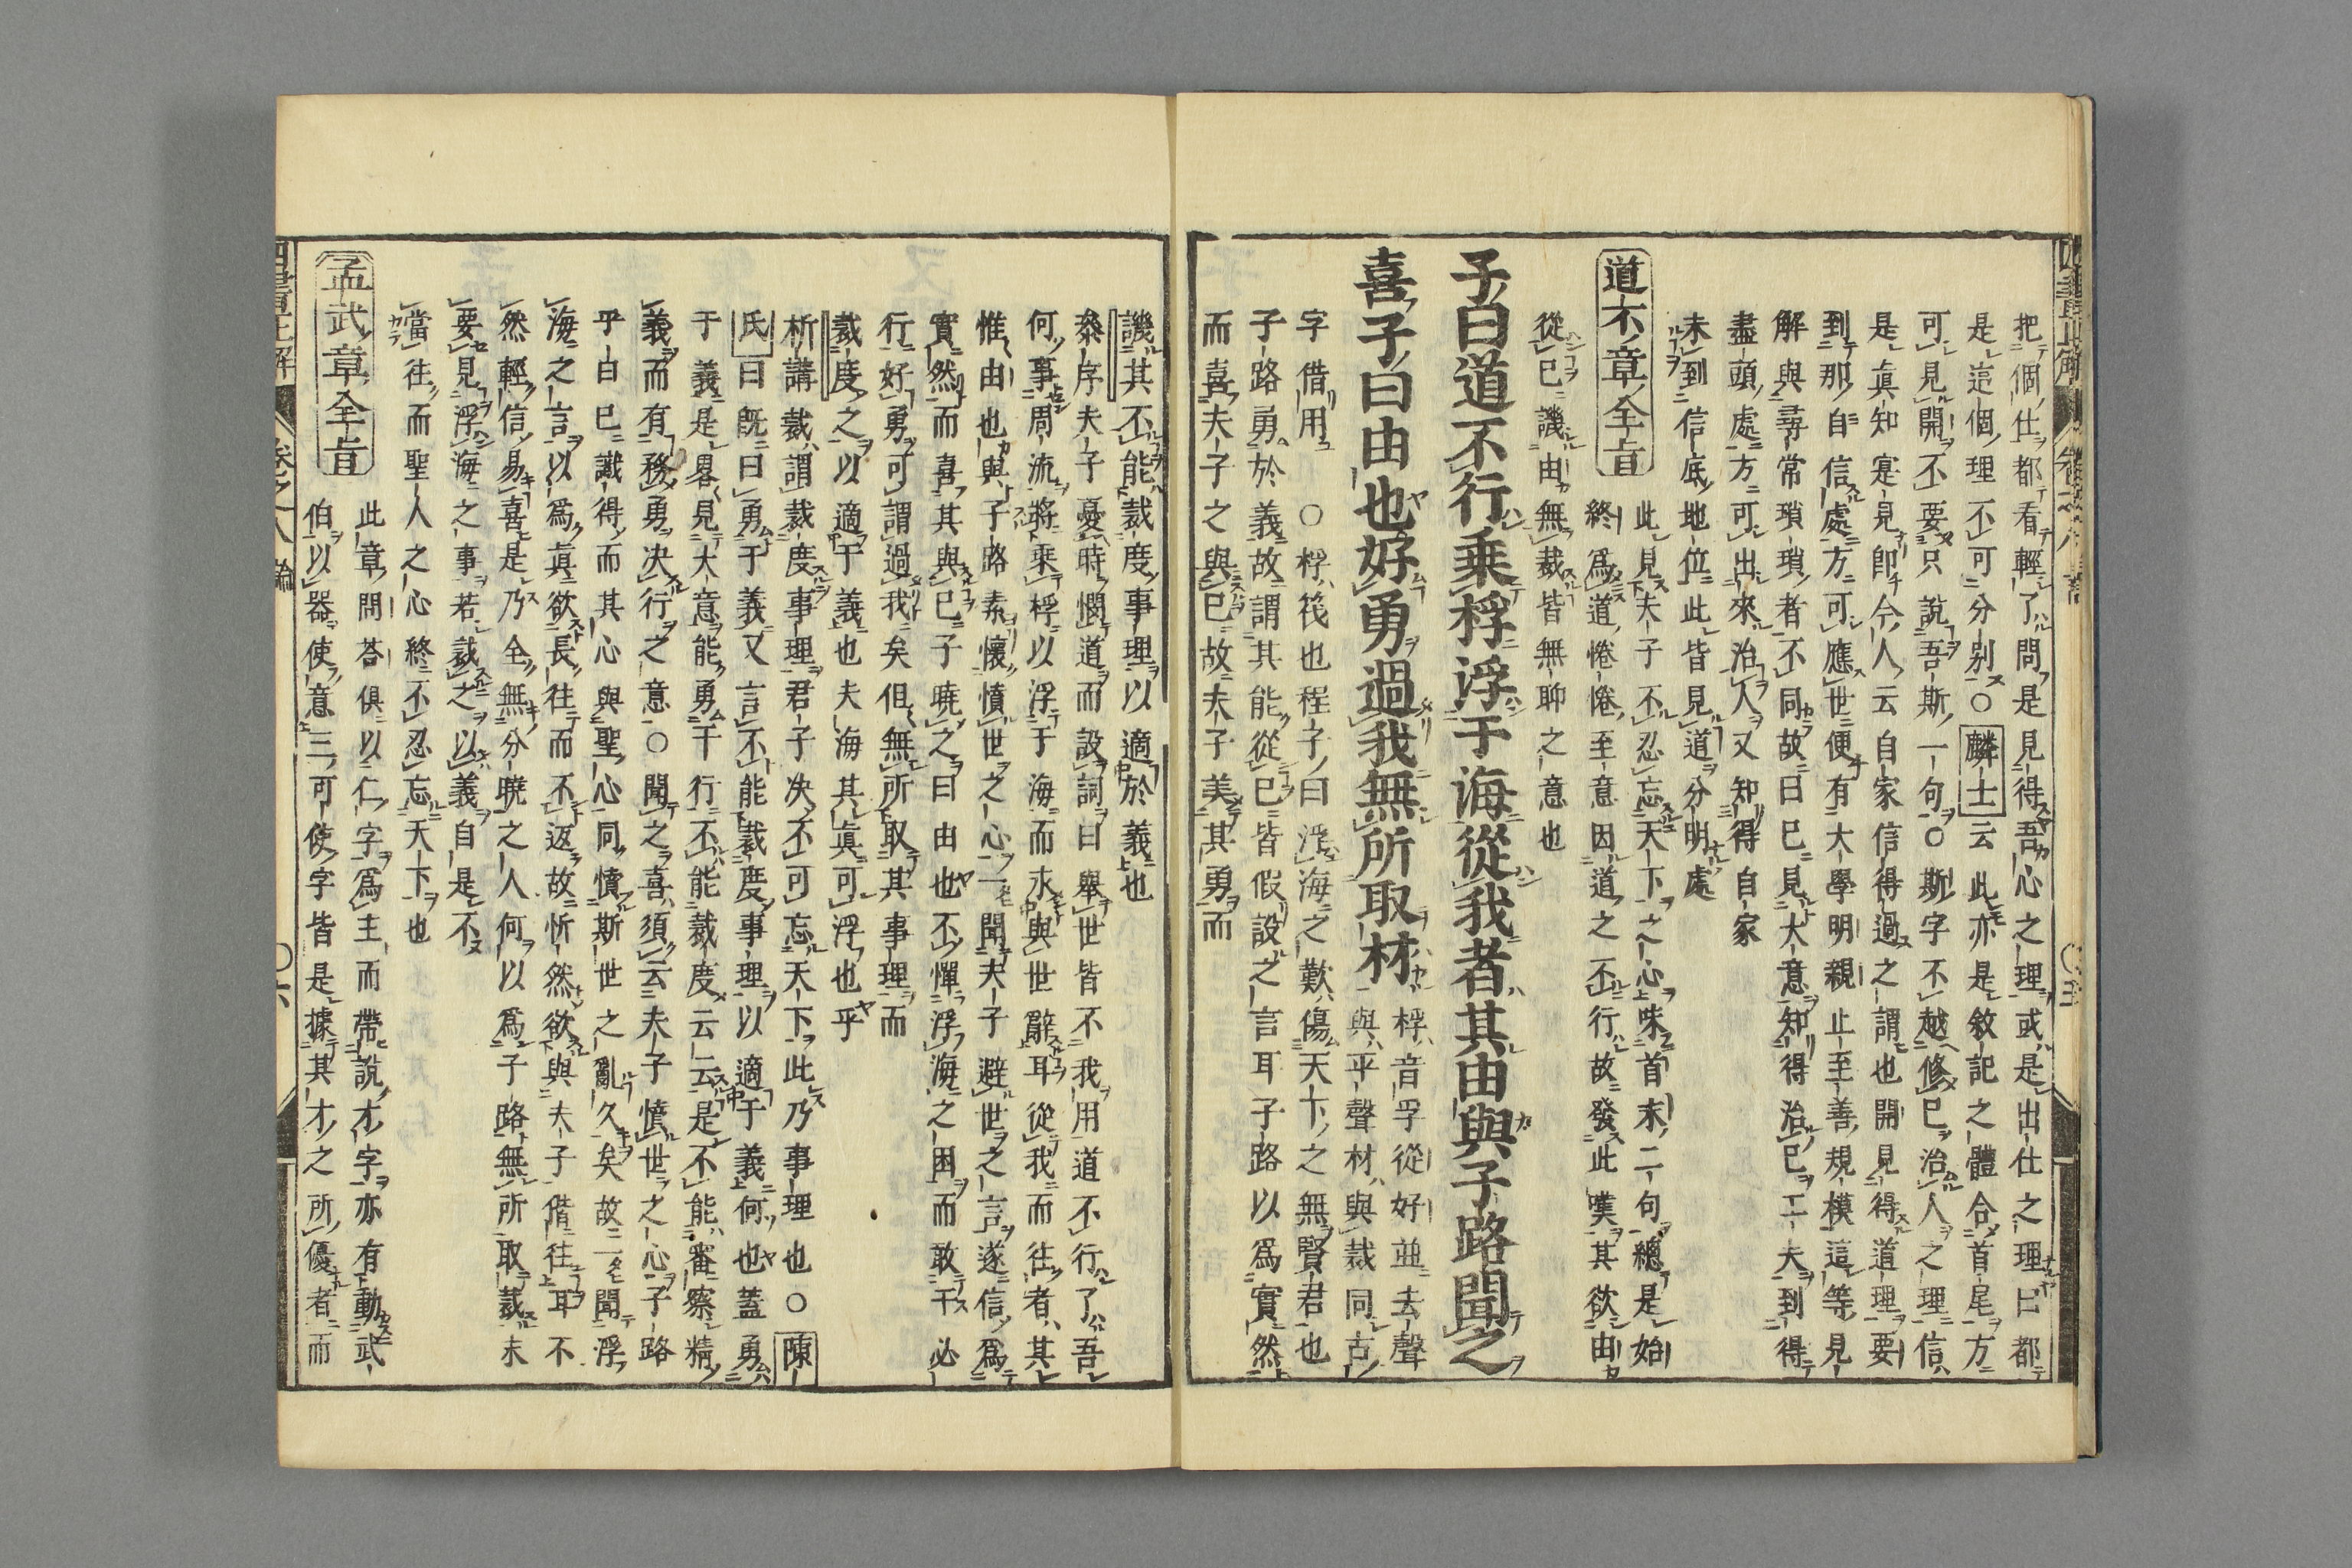 把個仕都看輕了問是見得吾心之理或是出仕之理曰都
是這個理不可分別○麟士云此亦是敘記之體合首尾方
可見開不要只說吾斯一句○斯字不越修己治人之理信
是眞知寔見卽今人云自家信得過之謂也開見得道理要
到那自信處方可應世便有大學明親止至善規模這等見
解與尋常瑣瑣者不同故曰已見大意知得治已工夫到得
盡頭處方可出來治人又知得自家
未到信底地位此皆見道分明處
道不章全旨
此見夫子不忍忘天下之心味首末二句總是始
終爲道惓惓至意因道之不行故發此嘆其欲由
從已譏由無裁皆無聊之意也
子曰道不行乘桴浮于海從我者其由與子路聞之
喜子曰由也好勇過我無所取材
桴音孚從好並去聲
與平聲材與裁同古
字借用 ○桴筏也程子曰浮海之歎傷天下之無賢君也
子路勇於義故謂其能從已皆假設之言耳子路以爲實然
而喜夫子之與已故夫子美其勇而
譏其不能裁度事理以適於義也
叅序夫子憂時憫道而設詞曰舉世皆不我用道不行了吾
何事周流將乘桴以浮于海而永與世辭耳從我而往者其
惟由也與子路素懷憤世之心一聞夫子避世之言遂信爲
實然而喜其與已子曉之曰由也不憚浮海之困而敢于必
行好勇可謂過我矣但無所取其事理而
裁度之以適于義也夫海其眞可浮也乎
析講裁謂裁度事理君子決不可忘天下此乃事理也○陳
氏曰旣曰勇于義又言不能裁度事理以適于義何也蓋勇
于義是畧見大意能勇于行不能裁度云云是不能審察精
義而有務勇決行之意○聞之喜須云夫子憤世之心子路
平白已識得而其心與聖心同憤斯世之亂久矣故一聞浮
海之言以爲眞欲長往而不返故忻然欲與夫子偕往耳不
然輕信易喜是乃全無分曉之人何以爲子路無所取裁未
要見浮海之事若裁之以義自是不
當往而聖人之心終不忍忘天下也
孟武章全旨
此章問荅俱以仁字爲主而帶說才字亦有動武
伯以器使意三可使字皆是據其才之所優者而
四書正解 卷之八 論 ○六